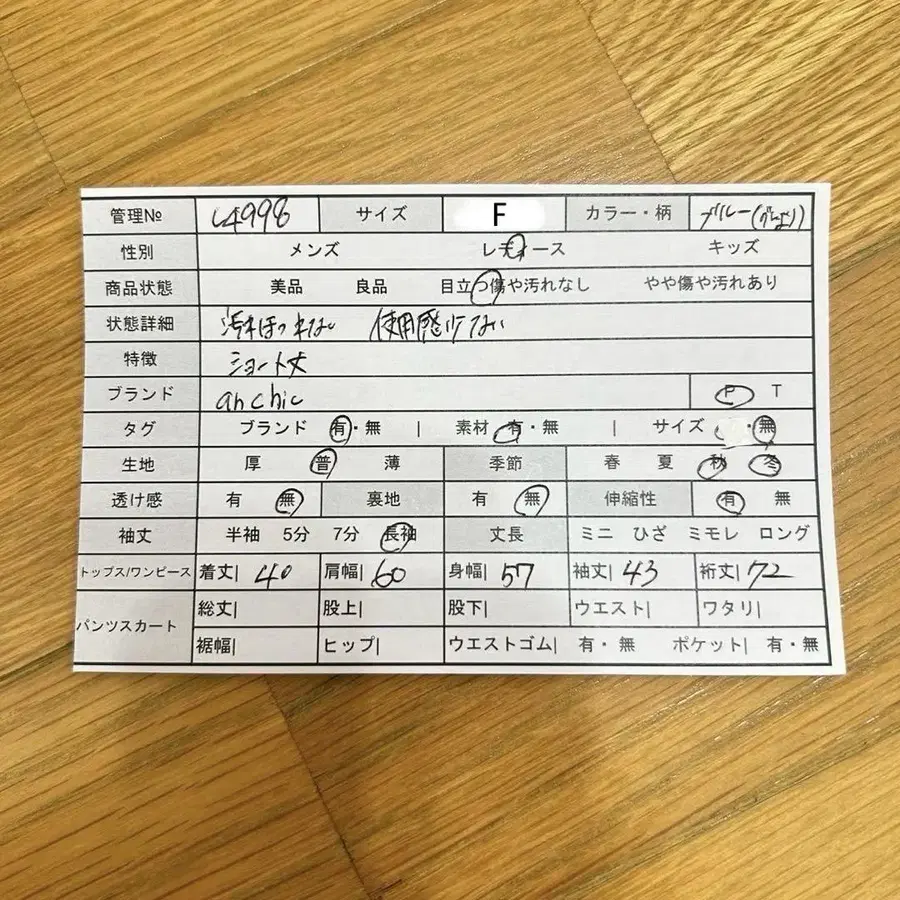 管理№ L4998 サイズ F カラー・柄 ブルー(グレーより)
性別 メンズ レディース キッズ
商品状態 美品 良品 目立つ傷や汚れなし やや傷や汚れあり
状態詳細 汚れほつれない 使用感少ない
特徴 ショート丈
ブランド anchic P T
タグ ブランド 有・無 | 素材 有・無 | サイズ ・無
生地 厚 普 薄 季節 春 夏 秋 冬
透け感 有 無 裏地 有 無 伸縮性 有 無
袖丈 半袖 5分 7分 長袖 丈長 ミニ ひざ ミモレ ロング
トップス/ワンピース 着丈| 40 肩幅| 60 身幅| 57 袖丈| 43 裄丈| 72
パンツスカート 総丈| 股上| 股下| ウエスト| ワタリ|
裾幅| ヒップ| ウエストゴム| 有・無 ポケット| 有・無